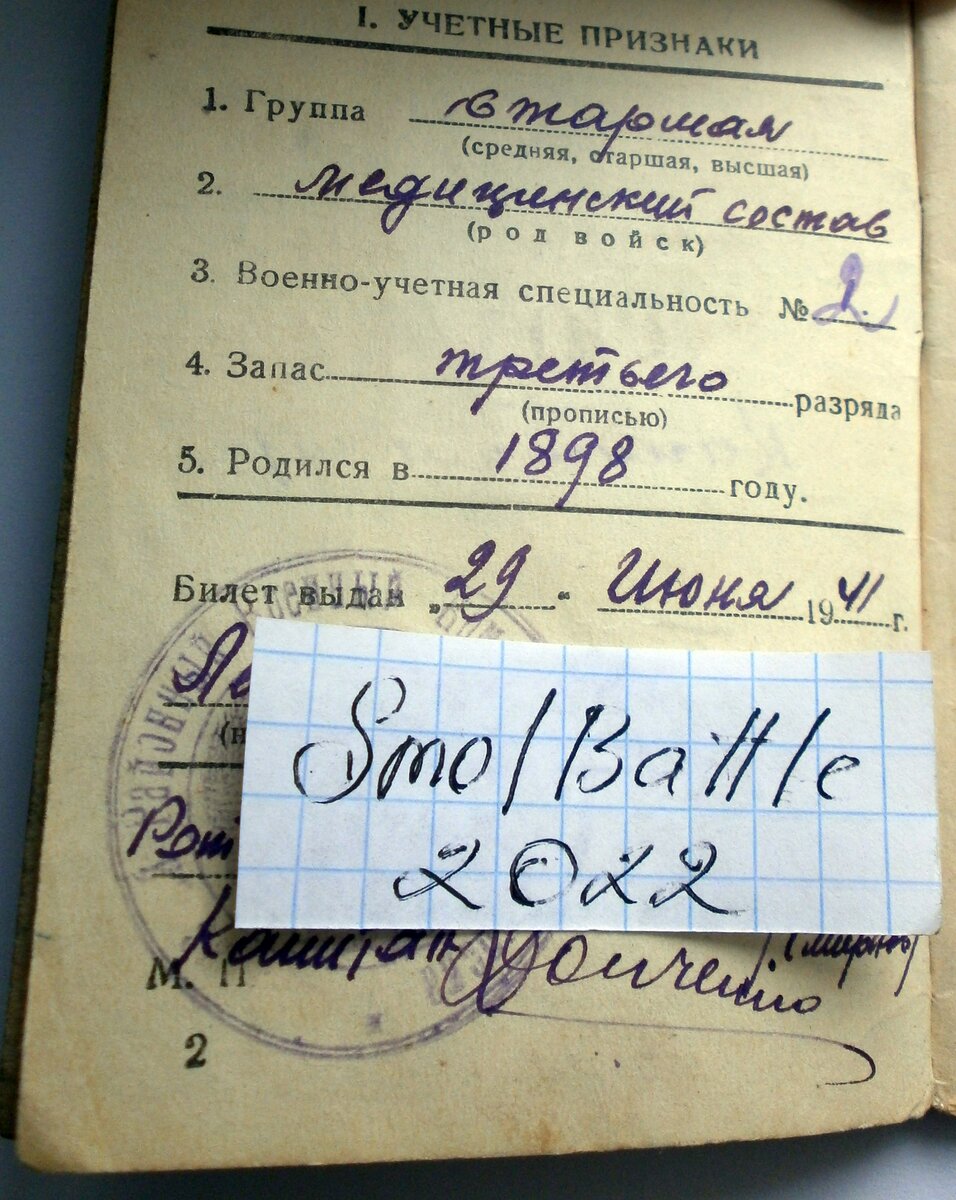 I. УЧЕТНЫЕ ПРИЗНАКИ
1. Группа старшая
(средняя, старшая, высшая)
2. медицинский состав
(род войск)
3. Военно-учетная специальность № 2
4. Запас третьего разряда
(прописью)
5. Родился в 1898 году.
Билет выдан „29" Июня 1941 г.
SmolBattle
2022
Капитан
М. П
2